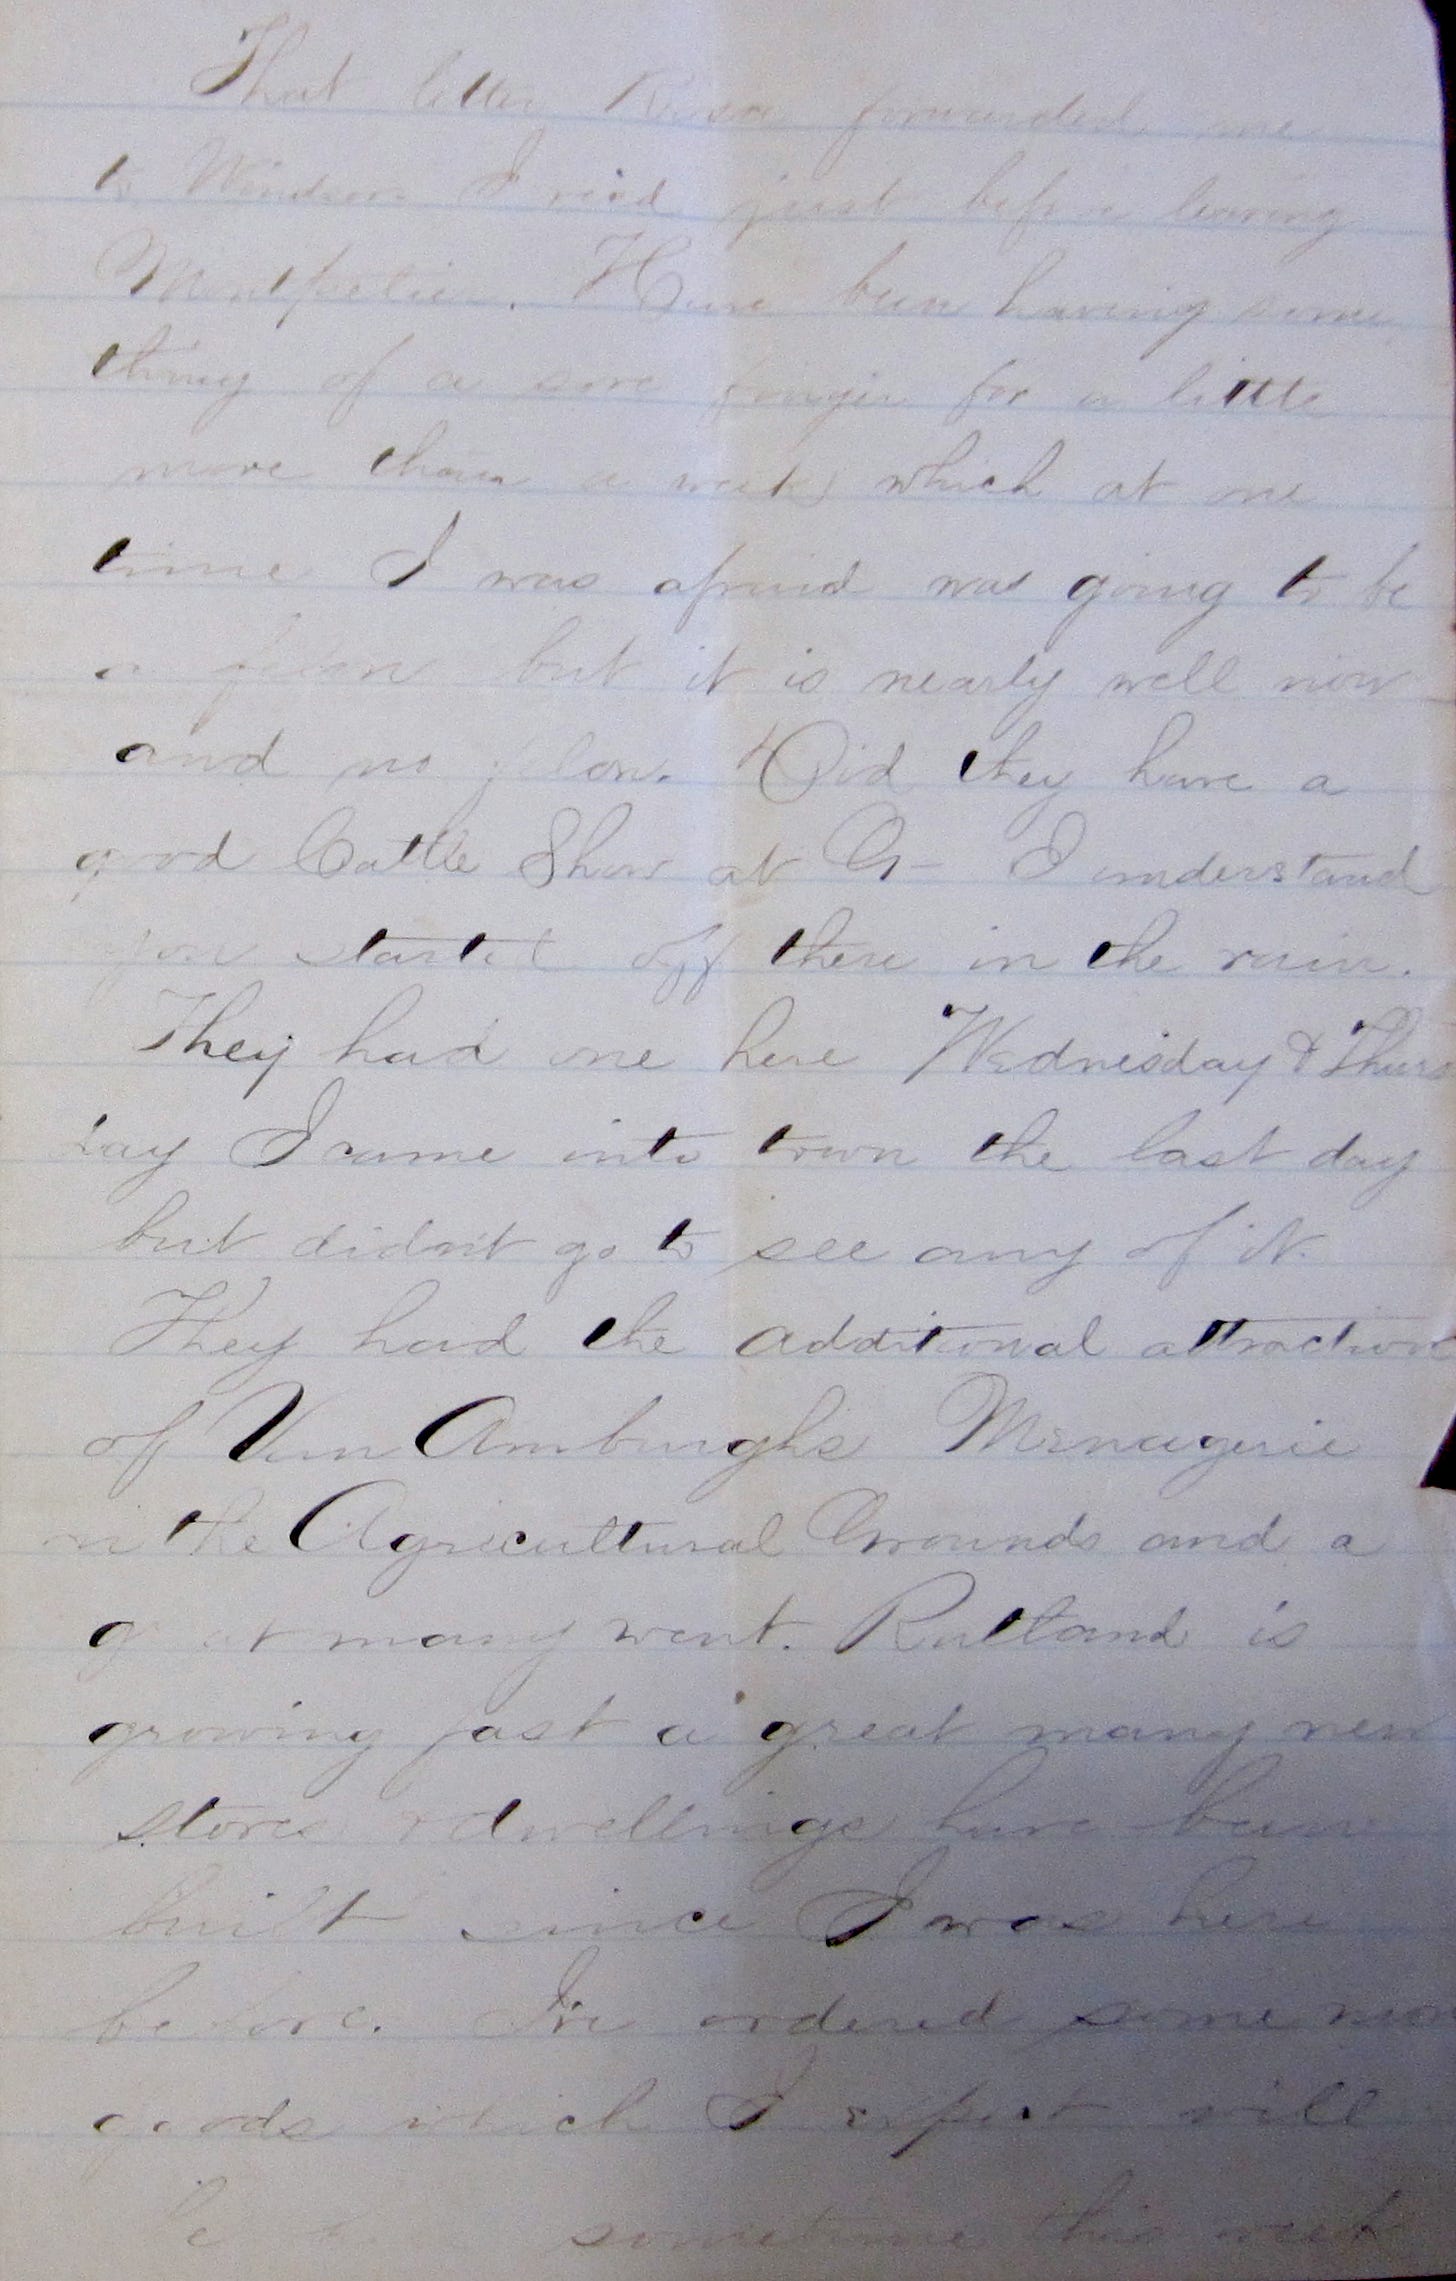 That letter forwarded me
to Windsor I recd just before leaving
Montpelier. Have been having some
thing of a sore finger for a little
more than a week which at one
time I was afraid was going to be
a felon but it is nearly well now
and no felon. Did they have a
good Cattle Show at G— I understand
you started off there in the rain.
They had one here Wednesday & Thurs
day I came into town the last day
but didn't go to see any of it.
They had the additional attraction
of Van Amburgh's Menagerie
on the Agricultural Grounds and a
great many went. Rutland is
growing fast a great many new
stores & dwellings have been
built since I was here
before. I've ordered some more
goods which I expect will
be sometime this week